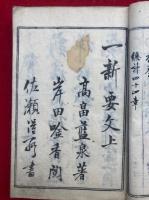 一新要文上
高畠藍泉著
岸田吟香閲
佐瀬得所書
総計四十四章